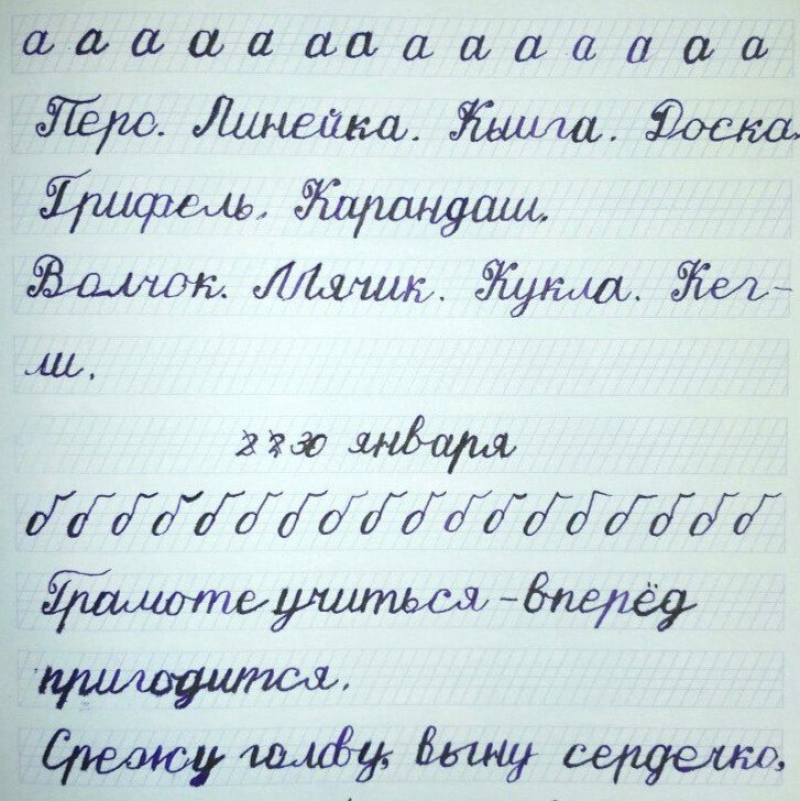 а а а а а а а а а а а а а а
Перо. Линейка. Книга. Доска.
Грифель. Карандаш.
Волчок. Мячик. Кукла. Кег-
ли.
30 января
б б б б б б б б б б б б б б б б б б
Грамоте учиться - вперёд
пригодится.
Срежу голову, выну сердечко,